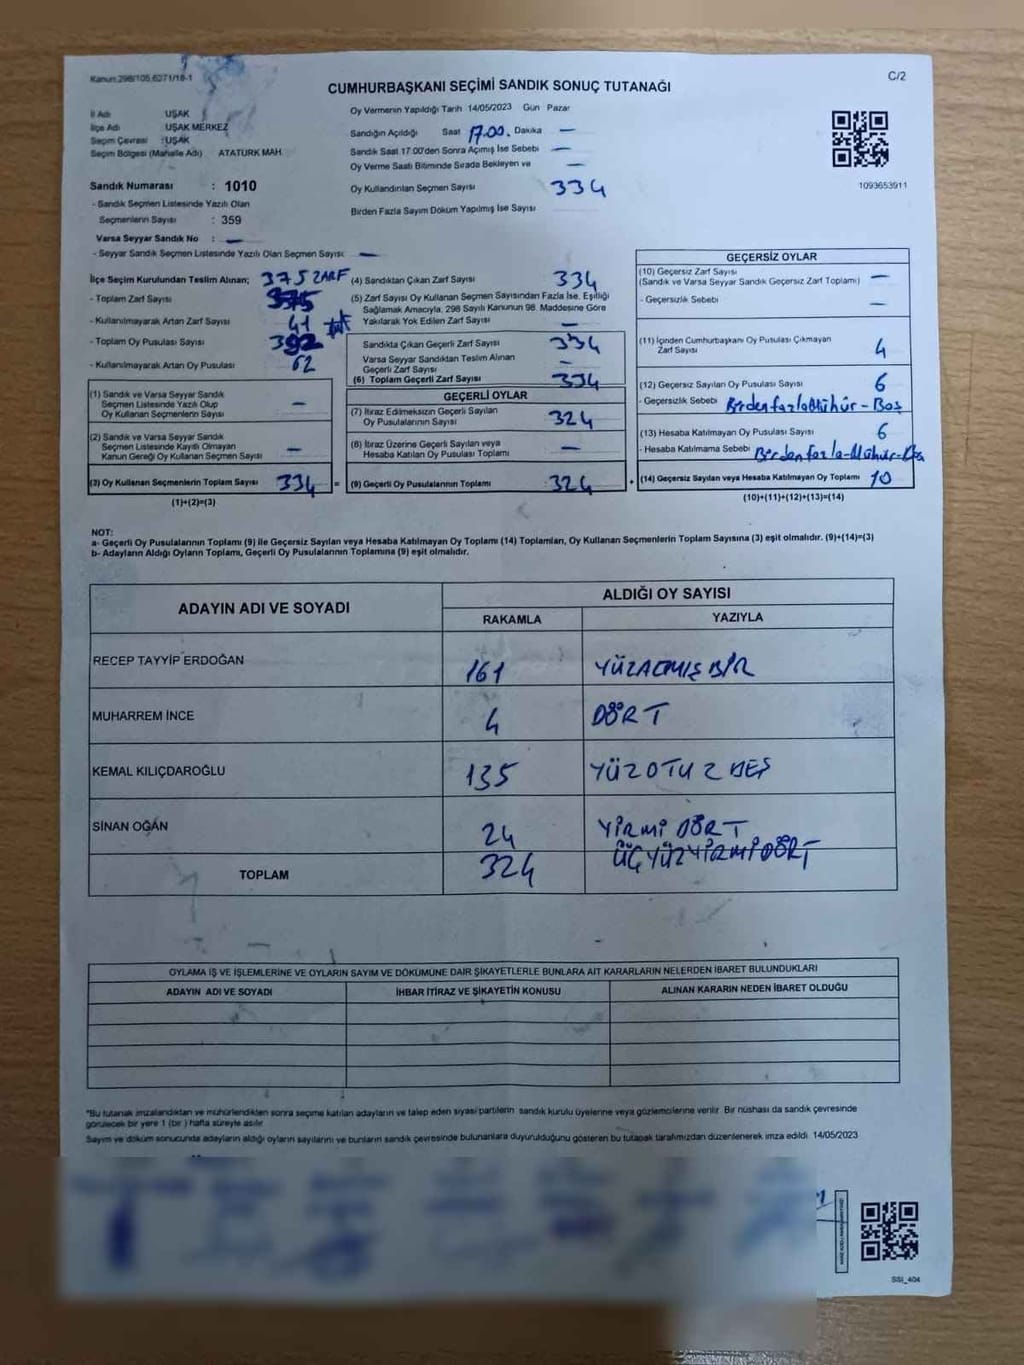 Kanun:298/105.6271/18-1
C/2
CUMHURBAŞKANI SEÇİMİ SANDIK SONUÇ TUTANAĞI
İl Adı UŞAK
İlçe Adı UŞAK MERKEZ
Seçim Çevresi : UŞAK
Seçim Bölgesi (Mahalle Adı) ATATÜRK MAH.
Sandık Numarası : 1010
- Sandık Seçmen Listesinde Yazılı Olan
Seçmenlerin Sayısı : 359
Varsa Seyyar Sandık No : —
- Seyyar Sandık Seçmen Listesinde Yazılı Olan Seçmen Sayısı: —
Oy Vermenin Yapıldığı Tarih 14/05/2023 Gün Pazar
Sandığın Açıldığı Saat 17.00. Dakika —
Sandık Saat 17:00'den Sonra Açımış İse Sebebi —
Oy Verme Saati Bitiminde Sırada Bekleyen ve —
Oy Kullandırılan Seçmen Sayısı 334
Birden Fazla Sayım Döküm Yapılmış İse Sayısı
1093653911
İlçe Seçim Kurulundan Teslim Alınan; 375 ZARF
- Toplam Zarf Sayısı 375
- Kullanılmayarak Artan Zarf Sayısı 41
- Toplam Oy Pusulası Sayısı 392
- Kullanılmayarak Artan Oy Pusulası 62
(1) Sandık ve Varsa Seyyar Sandık
Seçmen Listesinde Yazılı Olup
Oy Kullanan Seçmenlerin Sayısı —
(2) Sandık ve Varsa Seyyar Sandık
Seçmen Listesinde Kayıtlı Olmayan
Kanun Gereği Oy Kullanan Seçmen Sayısı —
(3) Oy Kullanan Seçmenlerin Toplam Sayısı 334 =
(1)+(2)=(3)
(4) Sandıktan Çıkan Zarf Sayısı 334
(5) Zarf Sayısı Oy Kullanan Seçmen Sayısından Fazla İse, Eşitliği
Sağlamak Amacıyla, 298 Sayılı Kanunun 98. Maddesine Göre
Yakılarak Yok Edilen Zarf Sayısı —
Sandıkta Çıkan Geçerli Zarf Sayısı 334
Varsa Seyyar Sandıktan Teslim Alınan
Geçerli Zarf Sayısı —
(6) Toplam Geçerli Zarf Sayısı 334
GEÇERLİ OYLAR
(7) İtiraz Edilmeksizin Geçerli Sayılan
Oy Pusulalarının Sayısı 324
(8) İtiraz Üzerine Geçerli Sayılan veya
Hesaba Katılan Oy Pusulası Toplamı —
(9) Geçerli Oy Pusulalarının Toplamı 324 +
GEÇERSİZ OYLAR
(10) Geçersiz Zarf Sayısı
(Sandık ve Varsa Seyyar Sandık Geçersiz Zarf Toplamı) —
- Geçersizlik Sebebi —
(11) İçinden Cumhurbaşkanı Oy Pusulası Çıkmayan
Zarf Sayısı 4
(12) Geçersiz Sayılan Oy Pusulası Sayısı 6
- Geçersizlik Sebebi Birden fazla Mühür - Boş
(13) Hesaba Katılmayan Oy Pusulası Sayısı 6
- Hesaba Katılmama Sebebi Birden fazla-Mühür-Boş
(14) Geçersiz Sayılan veya Hesaba Katılmayan Oy Toplamı 10
(10)+(11)+(12)+(13)=(14)
NOT:
a- Geçerli Oy Pusulalarının Toplamı (9) ile Geçersiz Sayılan veya Hesaba Katılmayan Oy Toplamı (14) Toplamları, Oy Kullanan Seçmenlerin Toplam Sayısına (3) eşit olmalıdır. (9)+(14)=(3)
b- Adayların Aldığı Oyların Toplamı, Geçerli Oy Pusulalarının Toplamına (9) eşit olmalıdır.
ADAYIN ADI VE SOYADI ALDIĞI OY SAYISI
RAKAMLA YAZIYLA
RECEP TAYYİP ERDOĞAN 161 YÜZALTMIŞ BİR
MUHARREM İNCE 4 DÖRT
KEMAL KILIÇDAROĞLU 135 YÜZOTUZ BEŞ
SİNAN OĞAN 24 YİRMİ DÖRT
TOPLAM 324 ÜÇYÜZYİRMİDÖRT
OYLAMA İŞ VE İŞLEMLERİNE VE OYLARIN SAYIM VE DÖKÜMÜNE DAİR ŞİKAYETLERLE BUNLARA AİT KARARLARIN NELERDEN İBARET BULUNDUKLARI
ADAYIN ADI VE SOYADI İHBAR İTİRAZ VE ŞİKAYETİN KONUSU ALINAN KARARIN NEDEN İBARET OLDUĞU
*Bu tutanak imzalandıktan ve mühürlendikten sonra seçime katılan adayların ve talep eden siyasi partilerin sandık kurulu üyelerine veya gözlemcilerine verilir. Bir nüshası da sandık çevresinde
görülecek bir yere 1 (bir ) hafta süreyle asılır
Sayım ve döküm sonucunda adayların aldığı oyların sayılarını ve bunların sandık çevresinde bulunanlara duyurulduğunu gösteren bu tutanak tarafımızdan düzenlenerek imza edildi. 14/05/2023
SSİ_404